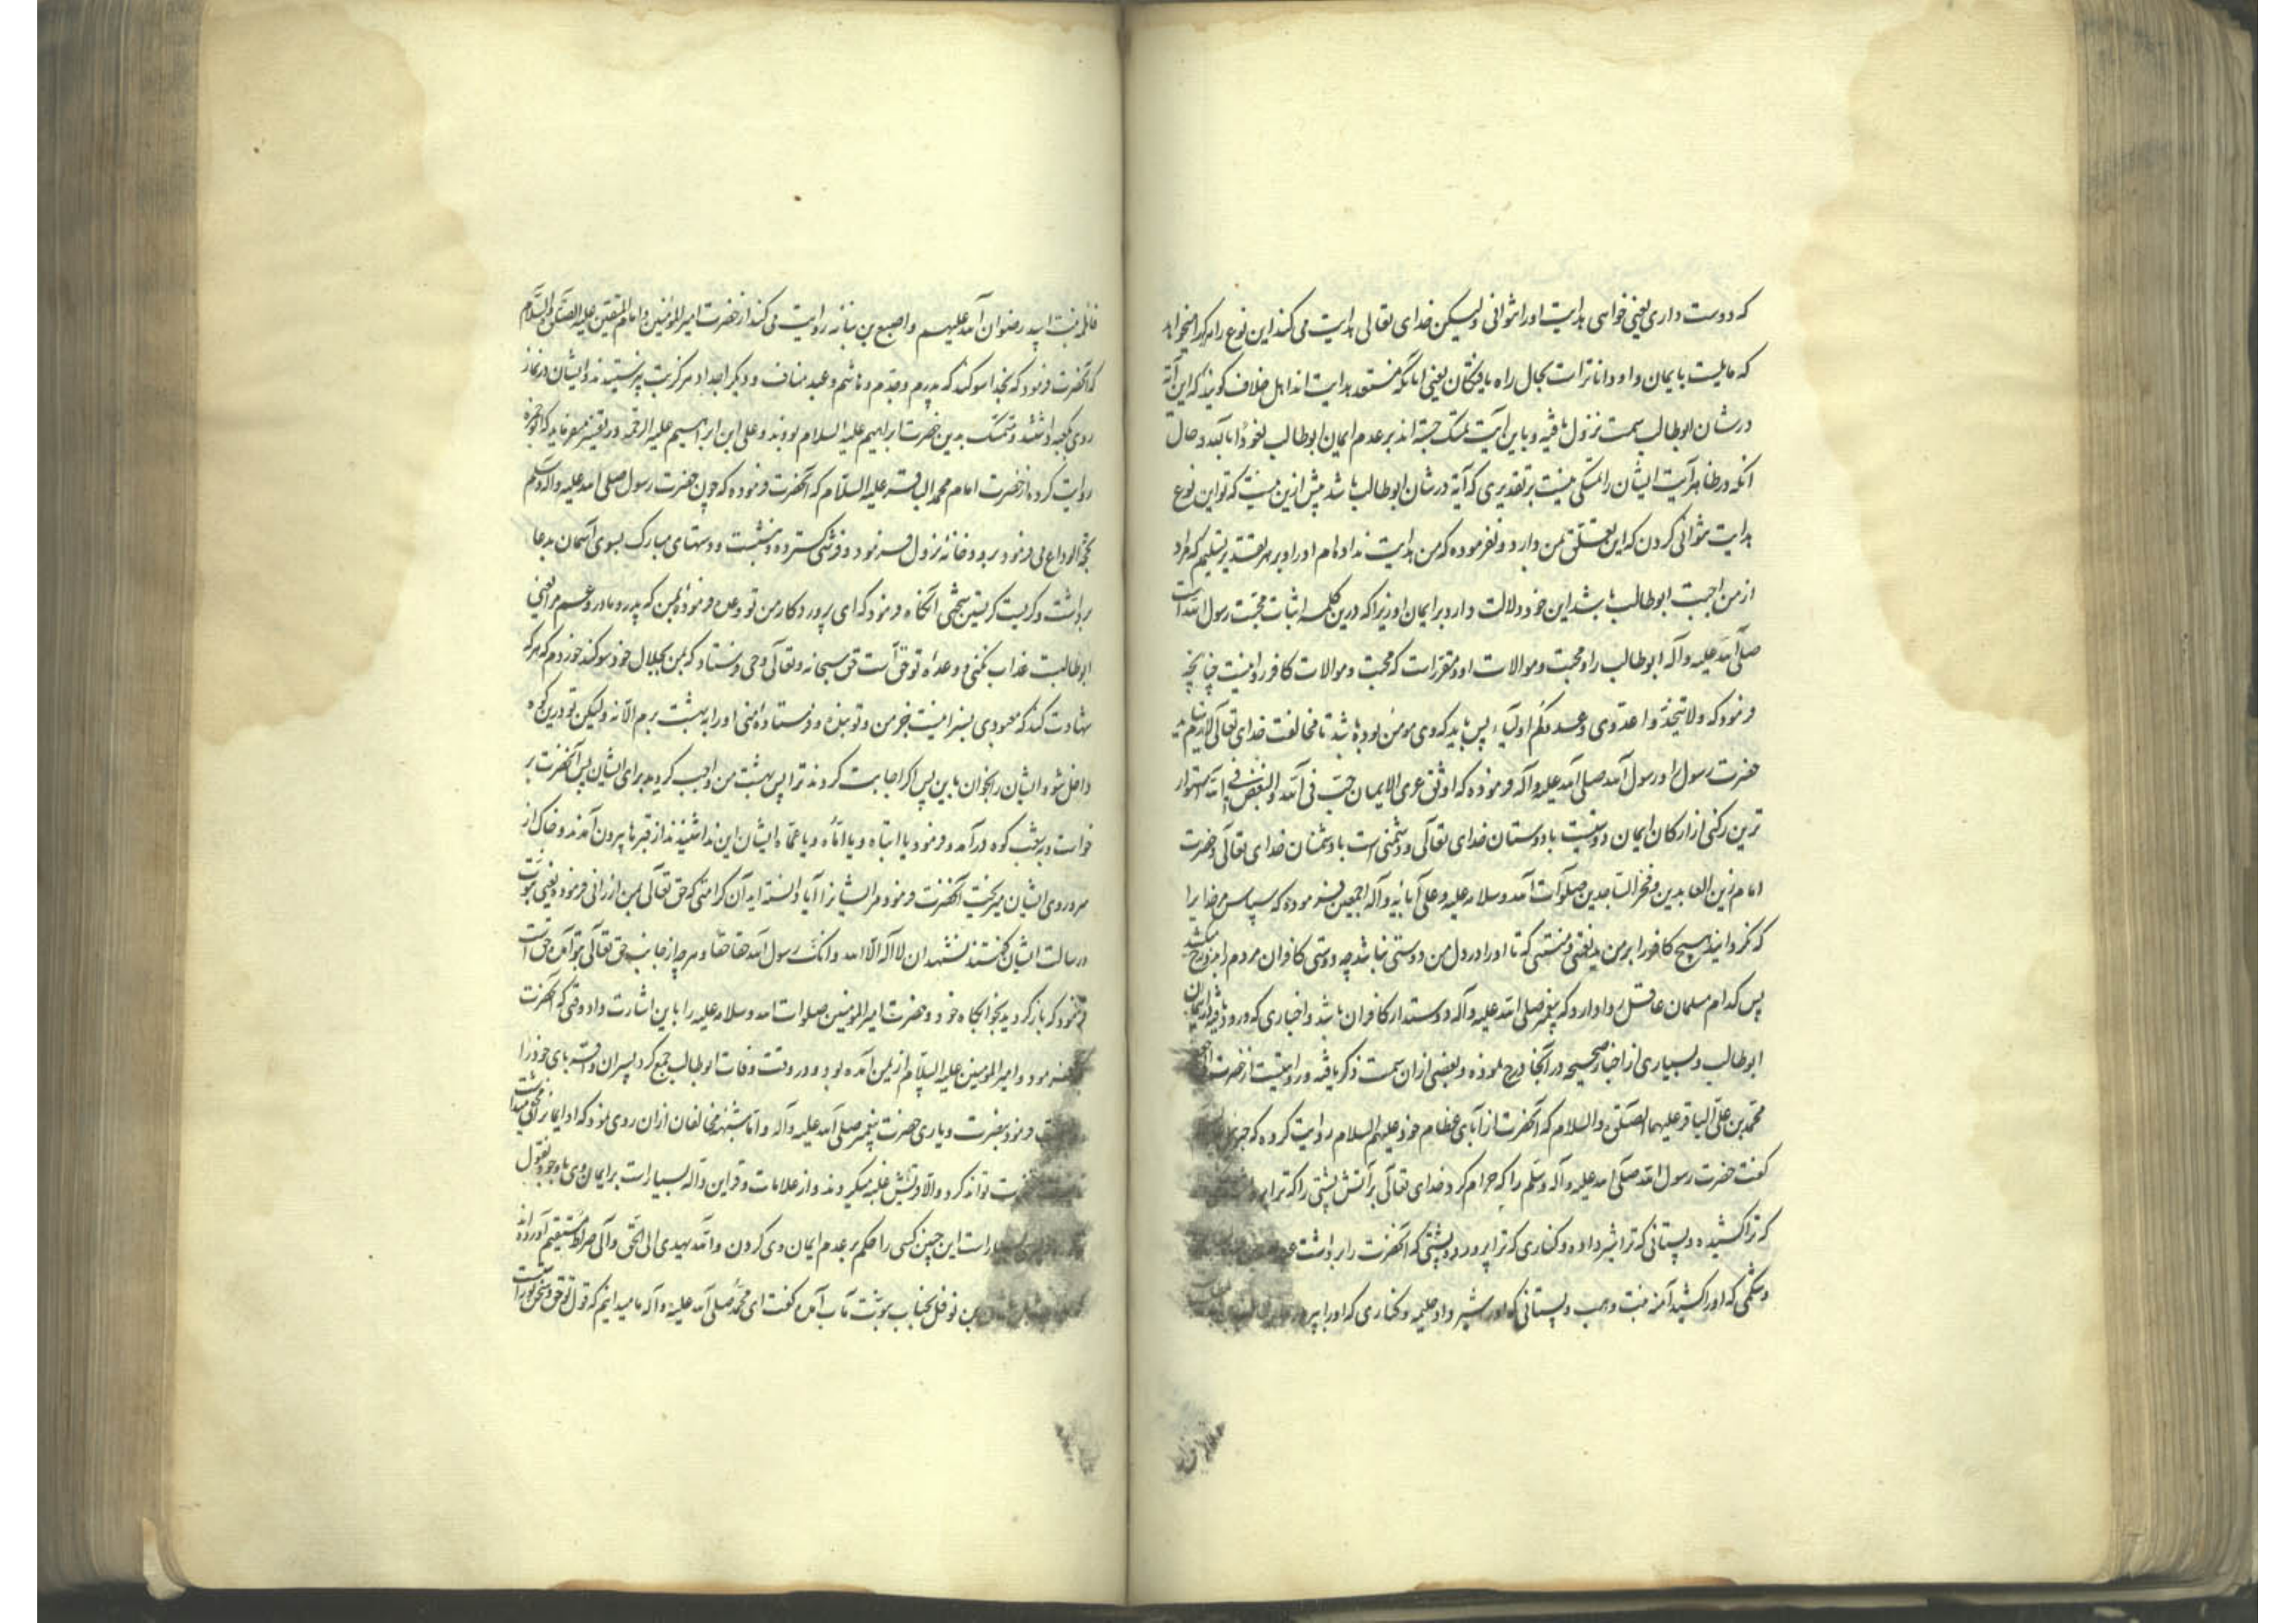 که دوست داری یعنی خواهی هدایت او را نتوانی ولیکن خدای تعالی هدایت می کند این نوع را هر کرا میخواهد
که مایلست بایمان و او داناترست بحال راه یافتگان یعنی آنانکه مستعد هدایت اند اهل خلاف گویند که این آیة
در شان ابوطالب سمت نزول یافته و باین آیت تمسک جسته اند بر عدم ایمان ابوطالب نعوذ بالله و حال
آنکه در ظاهر آیت ایشان را تمسکی نیست بر تقدیری که آیه در شان ابوطالب باشد بیش ازین نیست که تو این نوع
هدایت نتوانی کردن که این تعلق بمن دارد و نفرموده که من هدایت نداده ام او را و بر هر تقدیر تسلیم که مراد
از من احببت ابوطالب باشد این خود دلالت دارد بر ایمان او زیرا که درین کلمه اثبات محبت رسول الله است
صلی الله علیه و آله ابوطالب را و محبت و موالات او و مقررست که محبت و موالات کافر روا نیست چنانچه
فرمود که ولا تتخذوا عدوی و عدوکم اولیاء پس باید که وی مومن بوده باشد تا مخالفت خدای تعالی لازم نیاید
حضرت رسول او رسول الله صلی الله علیه و آله فرموده که اوثق عری الایمان حب فی الله والبغض فی الله استوار
ترین رکنی از ارکان ایمان دوستیست با دوستان خدای تعالی و دشمنی است با دشمنان خدای تعالی و حضرت
امام زین العابدین و فخر الساجدین صلوات الله و سلامه علیه و علی آبائه و آله اجمعین فرموده که سپاس مر خدایرا
که نگردانید هیچ کافر را بر من ید نعمتی و منتی که تا او را در دل من دوستی نباشد چه دوستی کافران مردم را بدوزخ میکشد
پس کدام مسلمان عاقل روا دارد که پیغمبر صلی الله علیه و آله دوستدار کافران باشد و اخباری که ورود یافته در ایمان
ابوطالب و بسیاری از اخبار صحیحه در آنجا درج نموده و بعضی ازان سمت ذکر یافته و روایتست از حضرت
محمد بن علی الباقر علیهما الصلوة والسلام که آنحضرت از آبای عظام خود علیهم السلام روایت کرده که
گفت حضرت رسول الله صلی الله علیه و آله وسلم را که حرام کرد خدای تعالی بر آتش پشتی را که ترا
که ترا کشیده و پستانی که ترا شیر داده و کناری که ترا پرورد و پشتی که آنحضرت را برداشت
و شکمی که او را کشید آمنه بنت وهب و پستانی که او را شیر داد حلیمه و کناری که او را
فاطمه بنت اسید رضوان الله علیهم و اصبغ بن نباته روایت می کند از حضرت امیر المؤمنین و امام المتقین علیه الصلوة والسلام
که آنحضرت فرمود که بخدا سوگند که پدرم و جدم و هاشم و عبد مناف و دیگر اجداد هرگز بت نپرستیدند و ایشان در نماز
روی بکعبه داشتند و تمسک بدین حضرت ابراهیم علیه السلام بودند و علی ابن ابراهیم علیه الرحمه در تفسیر میفرماید که ابوحمزه
روایت کرده از حضرت امام محمد الباقر علیه السلام که آنحضرت فرموده که چون حضرت رسول صلی الله علیه و آله وسلم
حجة الوداع می فرمود برودخانه نزول فرمود و فرشی گسترده و نشست و دستهای مبارک بسوی آسمان بدعا
برداشت و گریست گریستن سختی آنگاه فرمود که ای پروردگار من تو وعده فرموده بمن که پدر و مادر و عم مرا یعنی
ابوطالبت عذاب نکنی و وعده تو حق است حق سبحانه و تعالی وحی فرستاد که بمن بجلال خود سوگند خوردم که هر که
شهادت کند که معبودی بسزا نیست جز من و تو بنده و فرستاده منی او را به بهشت برم الا نه ولیکن تو درین کوه
داخل شو و ایشان را بخوان باین پس اگر اجابت کردند ترا پس بهشت من واجب گردید برای ایشان پس آنحضرت بر
خواست و بشعب کوه درآمد و فرمود یا ابتاه و یا اماه و یا عماه ایشان این ندا شنیدند از قبرها بیرون آمدند و خاک از
سر و روی ایشان میریخت آنحضرت فرمود مر ایشانرا آیا دانسته اید آن کرامتی که حق تعالی بمن ارزانی فرمود یعنی نبوت
و رسالت ایشان گفتند نشهد ان لا اله الا الله و انک رسول الله حقا حقا و هر چه از جانب حق تعالی بتو آمده حق است
فرمود که باز گردید بخوابگاه خود و حضرت امیر المومنین صلوات الله و سلامه علیه را باین اشارت داد وقتی که آنحضرت
فرمود و امیر المومنین علیه السلام از یمن آمده بود و در وقت وفات ابوطالب جمع کرد پسران و اقربای خود را
فرمود بنصرت و یاری حضرت پیغمبر صلی الله علیه و آله و اما شبهه مخالفان ازان روی نمود که او ایمان را مخفی میداشت
تواند کرد و الا قریش غلبه میکردند و از علامات و قراین داله بسیار است بر ایمان وی با وجود نقول
است این چنین کسی را حکم بر عدم ایمان وی کردن والله یهدی الی الحق و الی صراط مستقیم آورده اند
بن نوفل بجناب نبوت مآب آمده گفت ای محمد صلی الله علیه و آله ما میدانیم که قول تو حق و سخن تو راست